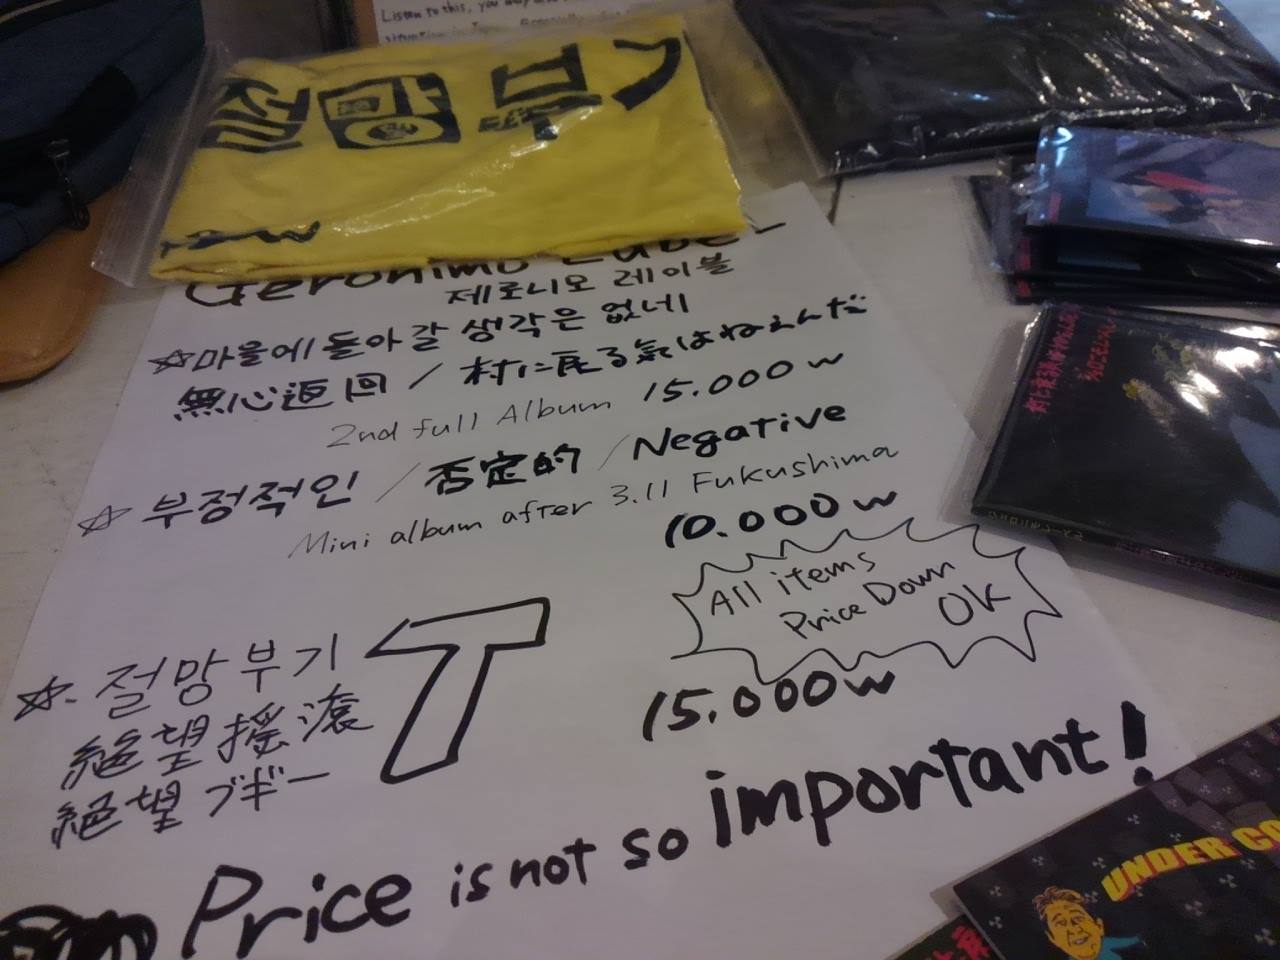 Listen to this, you may also
situation in Japan. Especially
절망부기
Geronimo Label
제로니오 레이블
☆마을에 돌아갈 생각은 없네
無心返回 / 村に戻る気はねえんだ
2nd full Album 15.000w
☆ 부정적인 / 否定的 / Negative
Mini album after 3.11 Fukushima
10.000w
All items
Price Down
OK
☆. 절망부기
絶望搖滾
絶望ブギー
T
15.000w
Price is not so important!
UNDER CO